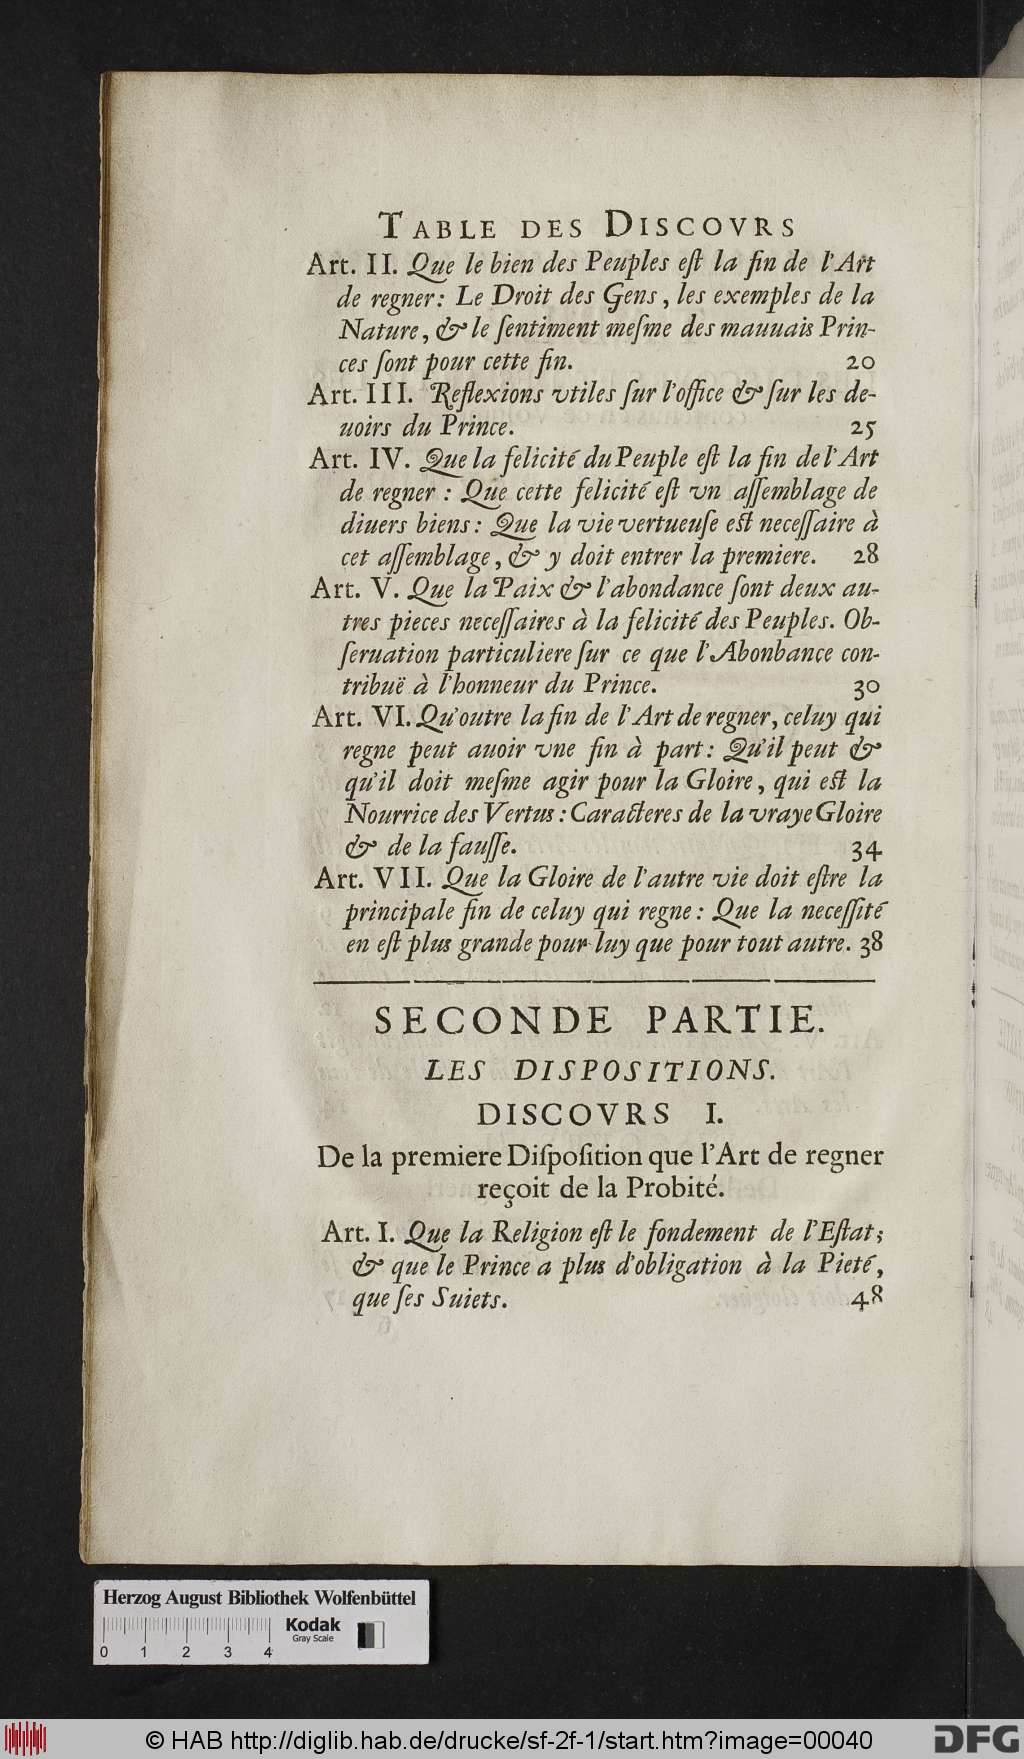 TABLE DES DISCOVRS
Art. II. Que le bien des Peuples eſt la fin de l'Art
de regner: Le Droit des Gens, les exemples de la
Nature, & le ſentiment meſme des mauuais Prin-
ces ſont pour cette fin. 20
Art. III. Reflexions vtiles ſur l'office & ſur les de-
uoirs du Prince. 25
Art. IV. Que la felicité du Peuple eſt la fin de l'Art
de regner : Que cette felicité eſt vn aſſemblage de
diuers biens: Que la vie vertueuſe eſt neceſſaire à
cet aſſemblage, & y doit entrer la premiere. 28
Art. V. Que la Paix & l'abondance ſont deux au-
tres pieces neceſſaires à la felicité des Peuples. Ob-
ſeruation particuliere ſur ce que l'Abonbance con-
tribuë à l'honneur du Prince. 30
Art. VI. Qu'outre la fin de l'Art de regner, celuy qui
regne peut auoir vne fin à part: Qu'il peut &
qu'il doit meſme agir pour la Gloire, qui eſt la
Nourrice des Vertus: Caracteres de la vraye Gloire
& de la fauſſe. 34
Art. VII. Que la Gloire de l'autre vie doit eſtre la
principale fin de celuy qui regne: Que la neceſſité
en eſt plus grande pour luy que pour tout autre. 38
SECONDE PARTIE.
LES DISPOSITIONS.
DISCOVRS I.
De la premiere Diſpoſition que l'Art de regner
reçoit de la Probité.
Art. I. Que la Religion eſt le fondement de l'Eſtat;
& que le Prince a plus d'obligation à la Pieté,
que ſes Suiets. 48
Herzog August Bibliothek Wolfenbüttel
Kodak
Gray Scale
0 1 2 3 4
© HAB http://diglib.hab.de/drucke/sf-2f-1/start.htm?image=00040
DFG